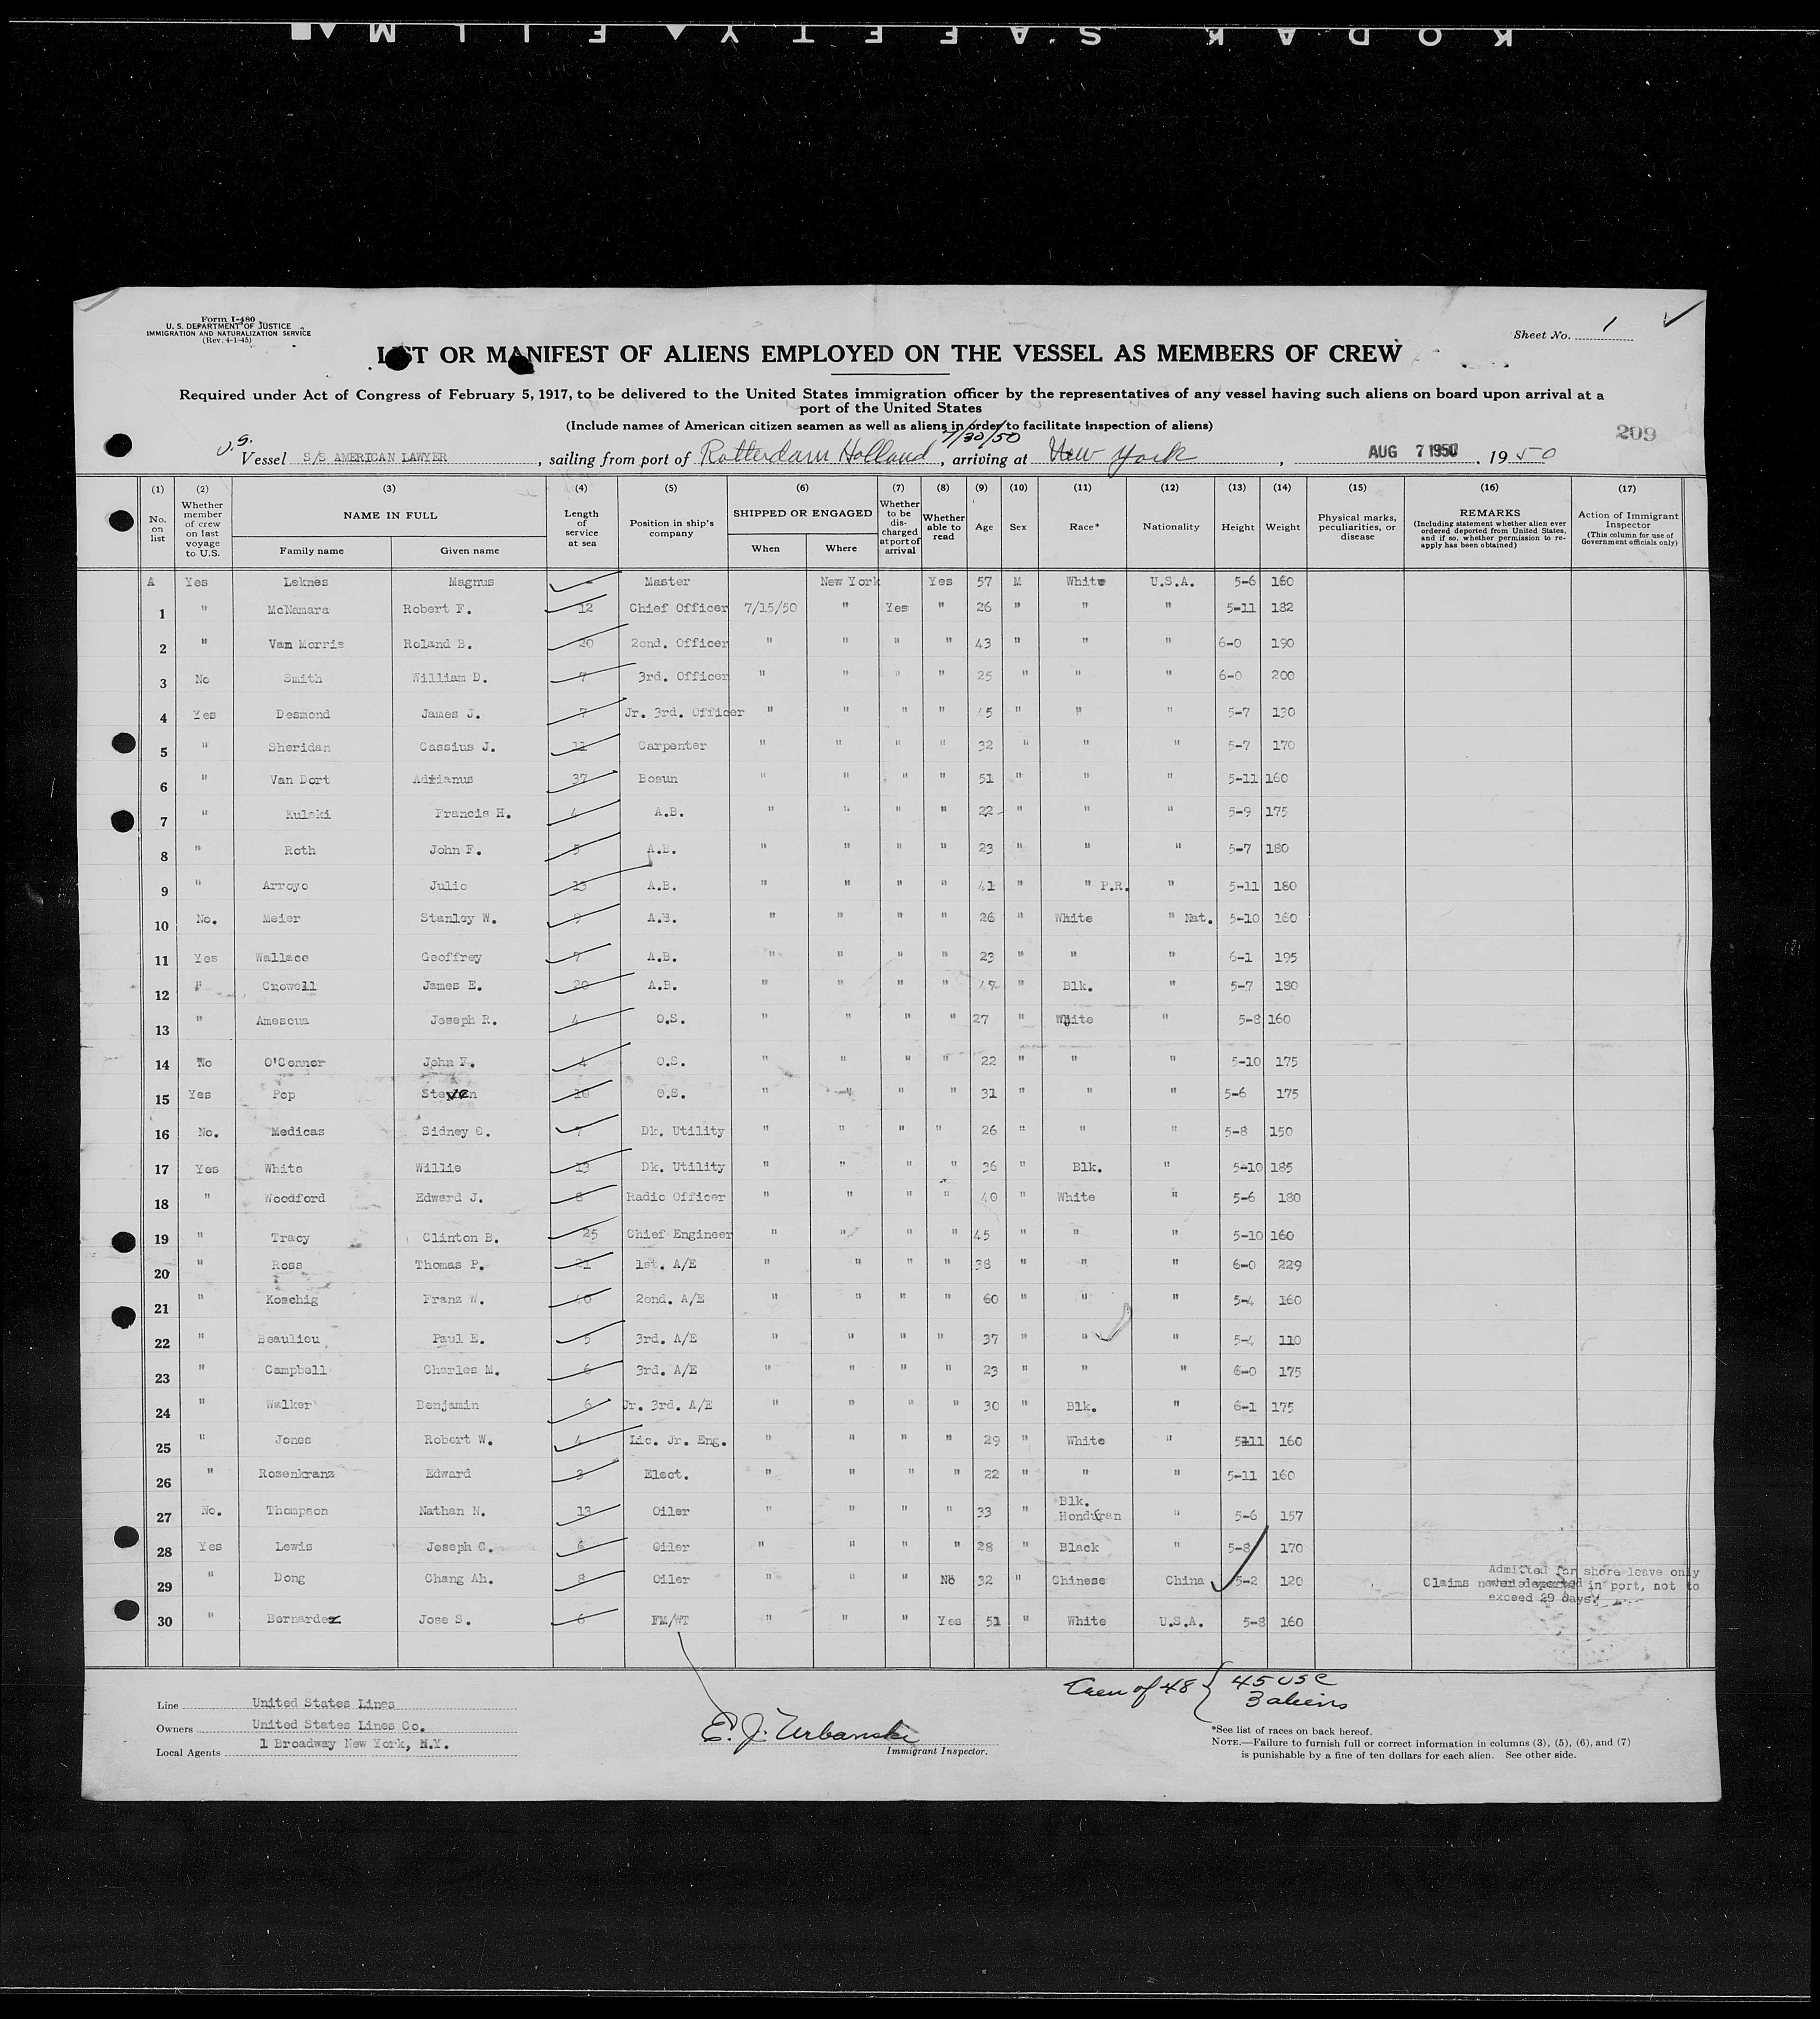 KODAK SAFETY FILM
Form I-480
U. S. DEPARTMENT OF JUSTICE
IMMIGRATION AND NATURALIZATION SERVICE
(Rev. 4-1-45)
Sheet No. 1
LIST OR MANIFEST OF ALIENS EMPLOYED ON THE VESSEL AS MEMBERS OF CREW
Required under Act of Congress of February 5, 1917, to be delivered to the United States immigration officer by the representatives of any vessel having such aliens on board upon arrival at a
port of the United States
(Include names of American citizen seamen as well as aliens in order to facilitate inspection of aliens)
7/30/50
209
U.S. Vessel S/S AMERICAN LAWYER, sailing from port of Rotterdam Holland, arriving at New York, AUG 7 1950, 1950
(1) No. on list (2) Whether member of crew on last voyage to U.S. (3) NAME IN FULL Family name Given name (4) Length of service at sea (5) Position in ship's company (6) SHIPPED OR ENGAGED When Where (7) Whether to be discharged at port of arrival (8) Whether able to read (9) Age (10) Sex (11) Race* (12) Nationality (13) Height (14) Weight (15) Physical marks, peculiarities, or disease (16) REMARKS (Including statement whether alien ever ordered deported from United States, and if so, whether permission to re-apply has been obtained) (17) Action of Immigrant Inspector (This column for use of Government officials only)
A Yes Leknes Magnus Master New York Yes 57 M White U.S.A. 5-6 160
1 " McNamara Robert F. 12 Chief Officer 7/15/50 " Yes " 26 " " " 5-11 182
2 " Van Morris Roland B. 20 2ond. Officer " " " " 43 " " " 6-0 190
3 No Smith William D. 7 3rd. Officer " " " " 25 " " " 6-0 200
4 Yes Desmond James J. 7 Jr. 3rd. Officer " " " " 45 " " " 5-7 130
5 " Sheridan Cassius J. 11 Carpenter " " " " 32 " " " 5-7 170
6 " Van Dort Adrianus 37 Bosun " " " " 51 " " " 5-11 160
7 " Kulski Francis H. 4 A.B. " " " " 22 " " " 5-9 175
8 " Roth John F. 5 A.B. " " " " 23 " " " 5-7 180
9 " Arroyo Julio 13 A.B. " " " " 41 " " P.R. " 5-11 180
10 No. Meier Stanley W. 9 A.B. " " " " 26 " White " Nat. 5-10 160
11 Yes Wallace Geoffrey 7 A.B. " " " " 23 " " " 6-1 195
12 " Crowell James E. 20 A.B. " " " " 47 " Blk. " 5-7 180
13 " Amescua Joseph R. 4 O.S. " " " " 27 " White " 5-8 160
14 No O'Connor John F. 4 O.S. " " " " 22 " " " 5-10 175
15 Yes Pop Steven 10 O.S. " " " " 31 " " " 5-6 175
16 No. Medicas Sidney C. 7 Dk. Utility " " " " 26 " " " 5-8 150
17 Yes White Willie 13 Dk. Utility " " " " 36 " Blk. " 5-10 185
18 " Woodford Edward J. 8 Radio Officer " " " " 40 " White " 5-6 180
19 " Tracy Clinton B. 25 Chief Engineer " " " " 45 " " " 5-10 160
20 " Ross Thomas P. 21 1st. A/E " " " " 38 " " " 6-0 229
21 " Koschig Franz W. 40 2ond. A/E " " " " 60 " " " 5-4 160
22 " Beaulieu Paul E. 5 3rd. A/E " " " " 37 " " " 5-4 110
23 " Campbell Charles M. 6 3rd. A/E " " " " 23 " " " 6-0 175
24 " Walker Benjamin 6 Jr. 3rd. A/E " " " " 30 " Blk. " 6-1 175
25 " Jones Robert W. 4 Lic. Jr. Eng. " " " " 29 " White " 5-11 160
26 " Rosenkranz Edward 3 Elect. " " " " 22 " " " 5-11 160
27 No. Thompson Nathan N. 13 Oiler " " " " 33 " Blk. Honduran " 5-6 157
28 Yes Lewis Joseph C. 6 Oiler " " " " 28 " Black " 5-8 170
29 " Dong Chang Ah. 8 Oiler " " " No 32 " Chinese China 5-2 120 Claims never deported Admitted for shore leave only while vessel in port, not to exceed 29 days.
30 " Bernardez Jose S. 6 FM/WT " " " Yes 51 " White U.S.A. 5-8 160
Crew of 48 { 45 USC
3 aliens
Line United States Lines
Owners United States Lines Co.
Local Agents 1 Broadway New York, N.Y.
E. J. Urbanski
Immigrant Inspector.
*See list of races on back hereof.
NOTE.—Failure to furnish full or correct information in columns (3), (5), (6), and (7)
is punishable by a fine of ten dollars for each alien. See other side.